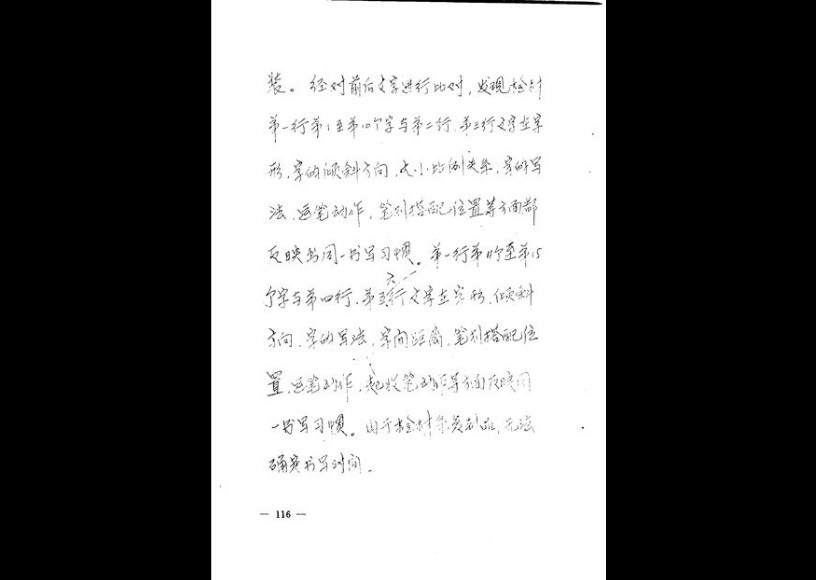 装。经对前后文字进行比对，发现检材
第一行第1至第10个字与第二行、第三行文字在字
形、字的倾斜方向、大小比例关系、字的写
法、运笔动作、笔划搭配位置等方面都
反映出同一书写习惯。第一行第11个至第15
个字与第四行、第五行文字在字形、倾斜
六
方向、字的写法、字间距离、笔划搭配位
置、运笔动作、起收笔动作等方面反映同
一书写习惯。由于检材系复制品，无法
确定书写时间。
— 116 —